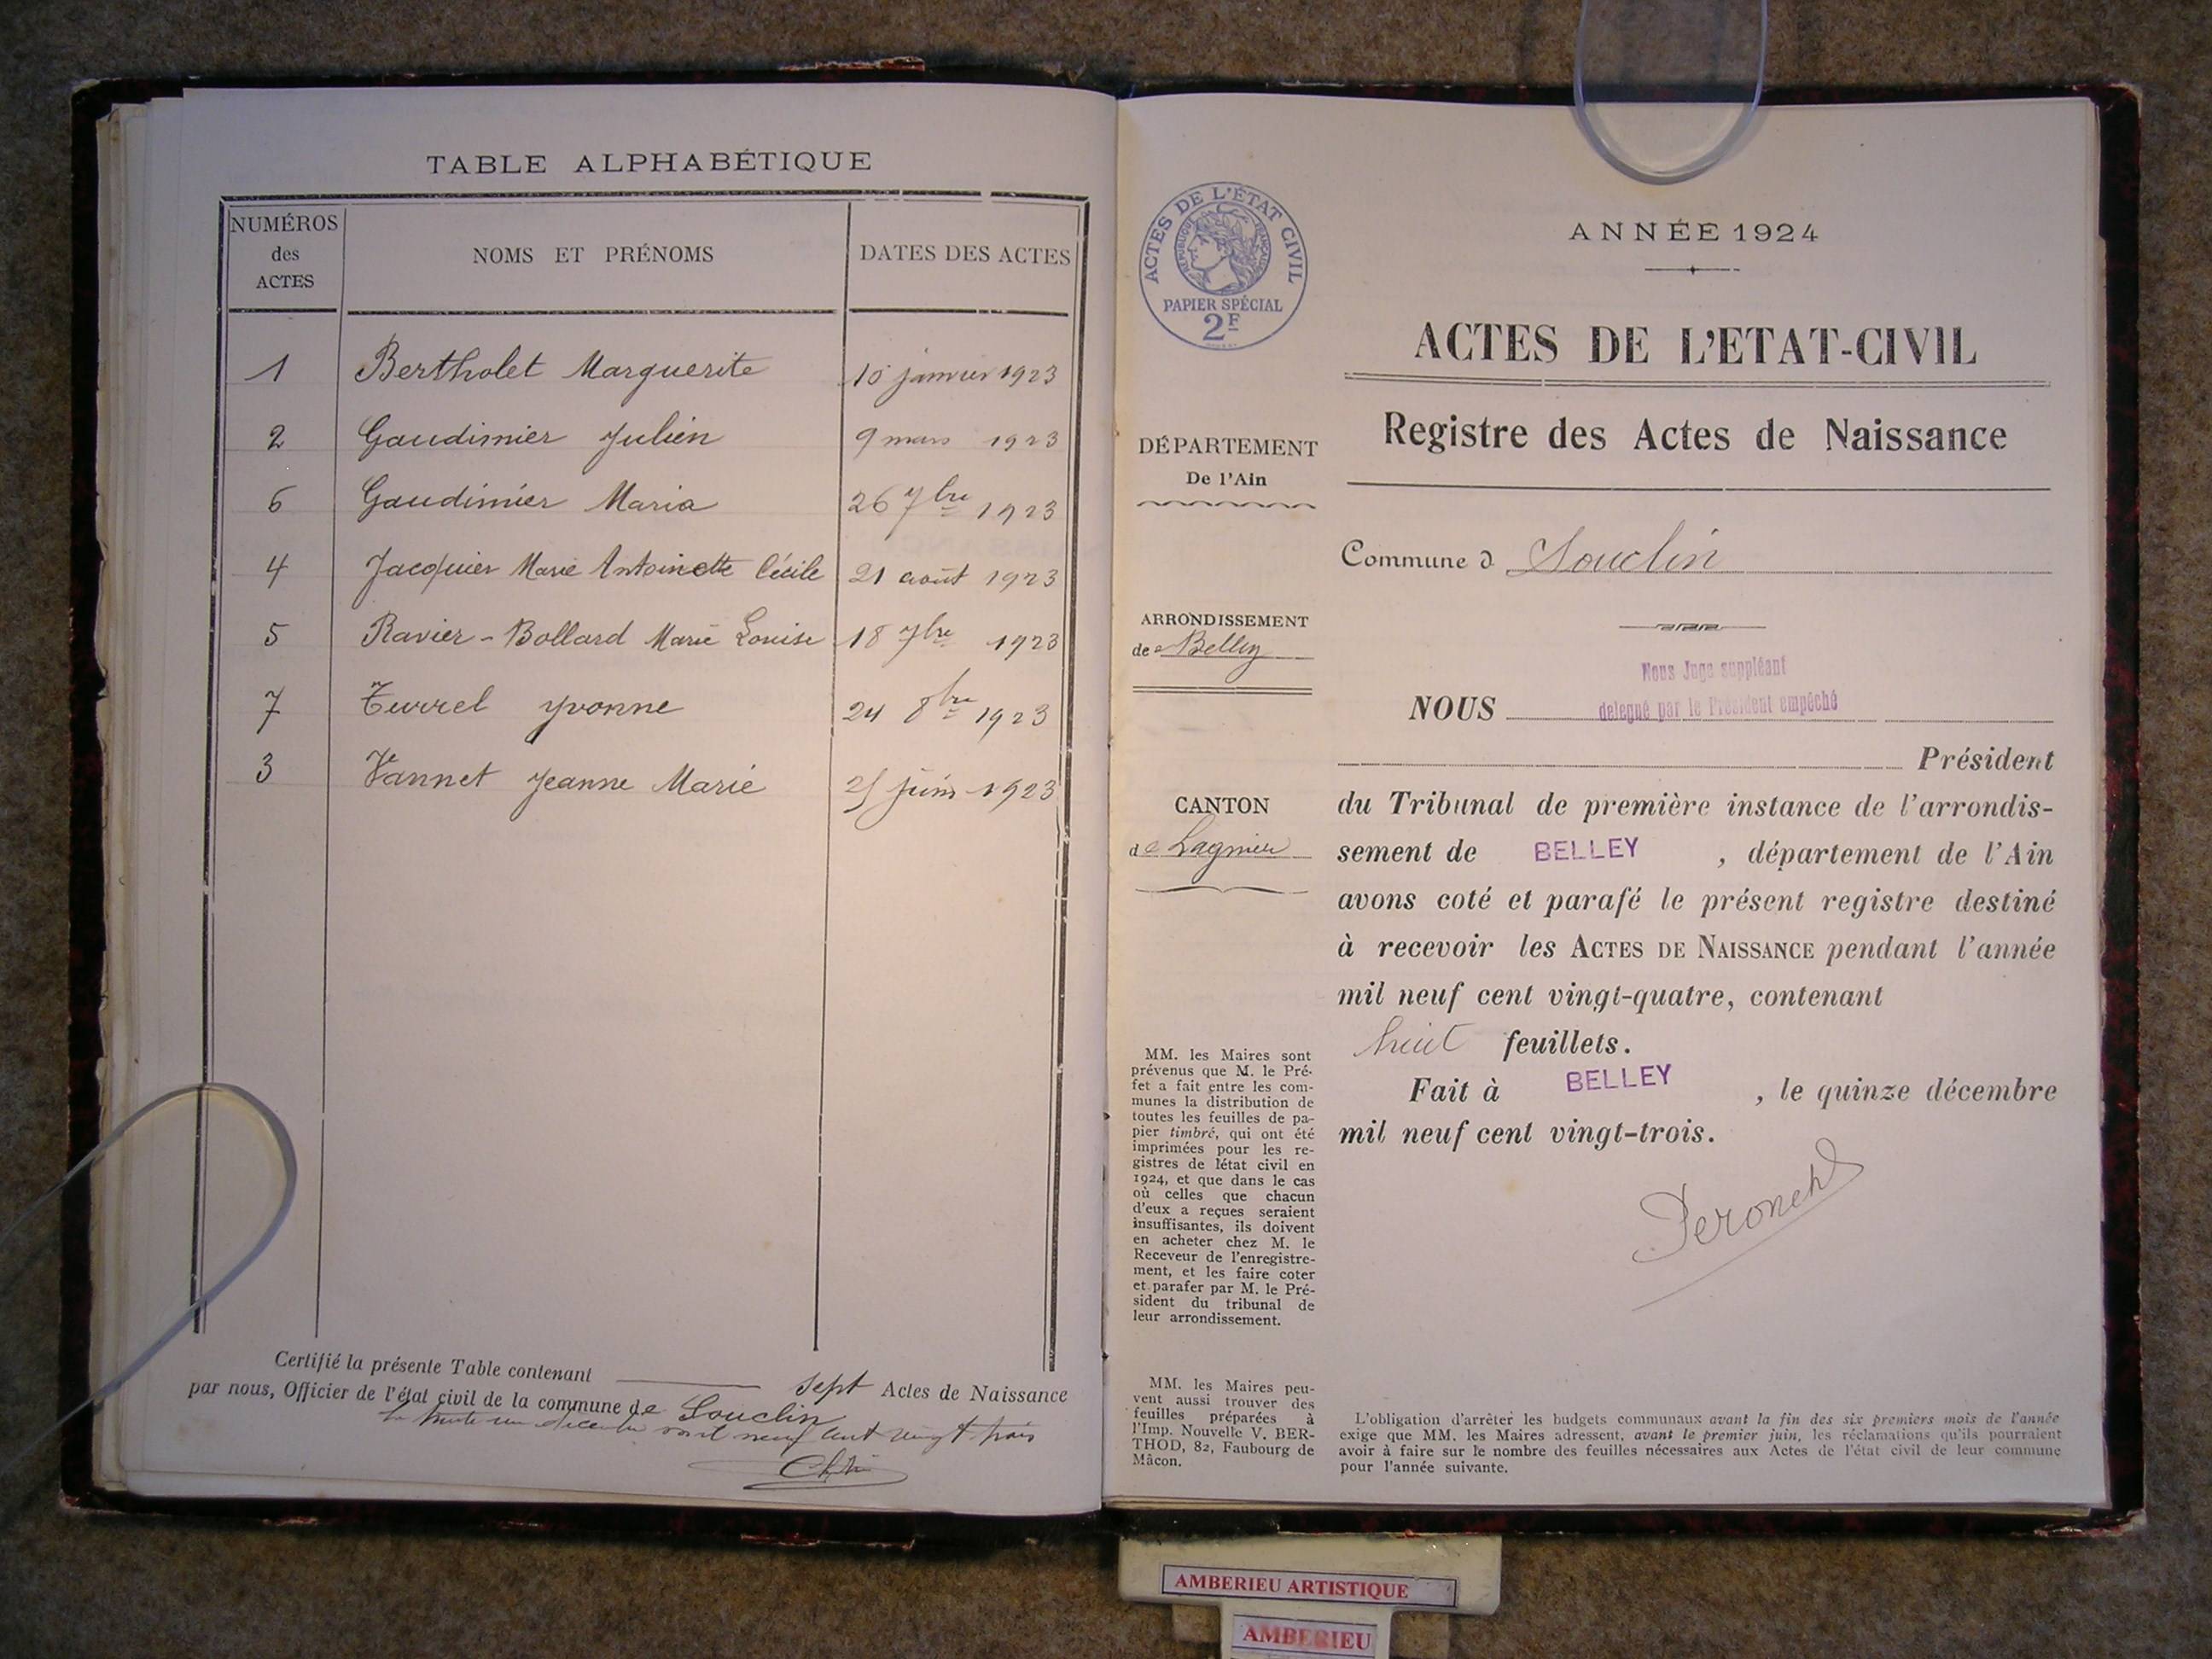 TABLE ALPHABÉTIQUE
NUMÉROS des ACTES NOMS ET PRÉNOMS DATES DES ACTES
1 Bertholet Marguerite 10 janvier 1923
2 Gaudimier Julien 9 mars 1923
6 Gaudimier Maria 26 7bre 1923
4 Jacquier Marie Antoinette Cécile 21 août 1923
5 Ravier-Bollard Marie Louise 18 7bre 1923
7 Turrel Yvonne 24 8bre 1923
3 Vannet Jeanne Marie 25 juin 1923
Certifié la présente Table contenant sept Actes de Naissance
par nous, Officier de l'état civil de la commune de Souclin
le trente un décembre mil neuf cent vingt trois
ACTES DE L'ÉTAT CIVIL
RÉPUBLIQUE FRANÇAISE
PAPIER SPÉCIAL
2F
DÉPARTEMENT
De l'Ain
ARRONDISSEMENT
de Belley
CANTON
de Lagnieu
MM. les Maires sont
prévenus que M. le Pré-
fet a fait entre les com-
munes la distribution de
toutes les feuilles de pa-
pier timbré, qui ont été
imprimées pour les re-
gistres de l'état civil en
1924, et que dans le cas
où celles que chacun
d'eux a reçues seraient
insuffisantes, ils doivent
en acheter chez M. le
Receveur de l'enregistre-
ment, et les faire coter
et parafer par M. le Pré-
sident du tribunal de
leur arrondissement.
MM. les Maires peu-
vent aussi trouver des
feuilles préparées à
l'Imp. Nouvelle V. BER-
THOD, 82, Faubourg de
Mâcon.
ANNÉE 1924
ACTES DE L'ETAT-CIVIL
Registre des Actes de Naissance
Commune d Souclin
Nous Juge suppléant
NOUS delegué par le Président empêché
Président
du Tribunal de première instance de l'arrondis-
sement de BELLEY , département de l'Ain
avons coté et parafé le présent registre destiné
à recevoir les ACTES DE NAISSANCE pendant l'année
mil neuf cent vingt-quatre, contenant
huit feuillets.
Fait à BELLEY , le quinze décembre
mil neuf cent vingt-trois.
L'obligation d'arrêter les budgets communaux avant la fin des six premiers mois de l'année
exige que MM. les Maires adressent, avant le premier juin, les réclamations qu'ils pourraient
avoir à faire sur le nombre des feuilles nécessaires aux Actes de l'état civil de leur commune
pour l'année suivante.
AMBERIEU ARTISTIQUE
AMBERIEU